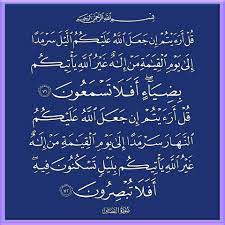 بِسْمِ اللَّهِ الرَّحْمَٰنِ الرَّحِيمِ
قُلْ أَرَءَيْتُمْ إِن جَعَلَ اللَّهُ عَلَيْكُمُ الَّيْلَ سَرْمَدًا
إِلَىٰ يَوْمِ الْقِيَٰمَةِ مَنْ إِلَٰهٌ غَيْرُ اللَّهِ يَأْتِيكُم
بِضِيَآءٍ ۖ أَفَلَا تَسْمَعُونَ ٧١
قُلْ أَرَءَيْتُمْ إِن جَعَلَ اللَّهُ عَلَيْكُمُ
النَّهَارَ سَرْمَدًا إِلَىٰ يَوْمِ الْقِيَٰمَةِ مَنْ إِلَٰهٌ
غَيْرُ اللَّهِ يَأْتِيكُم بِلَيْلٍ تَسْكُنُونَ فِيهِ ۖ
أَفَلَا تُبْصِرُونَ ٧٢
سُورَةُ القَصَصِ